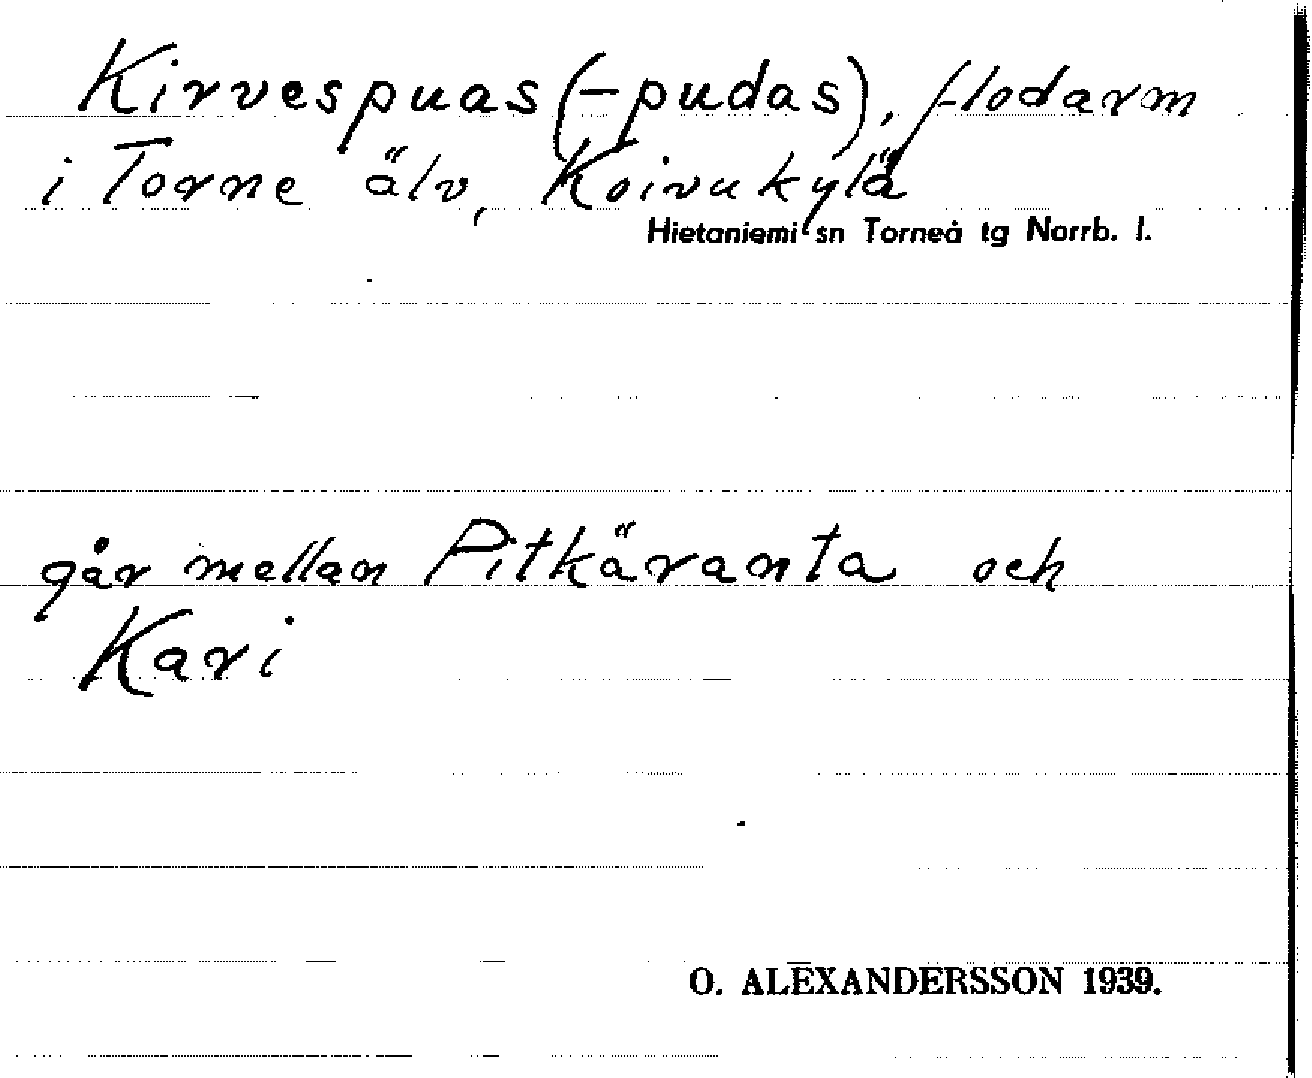 Kirvespuas (-pudas), flodarm
i Torne älv, Koivukylä
Hietaniemi sn Torneå tg Norrb. l.
går mellan Pitkäranta och
Kari
O. ALEXANDERSSON 1939.